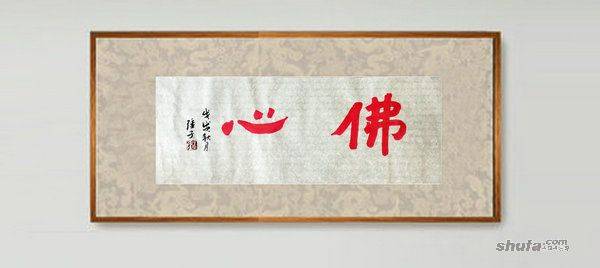 佛心
戊戌秋月
shufa.com